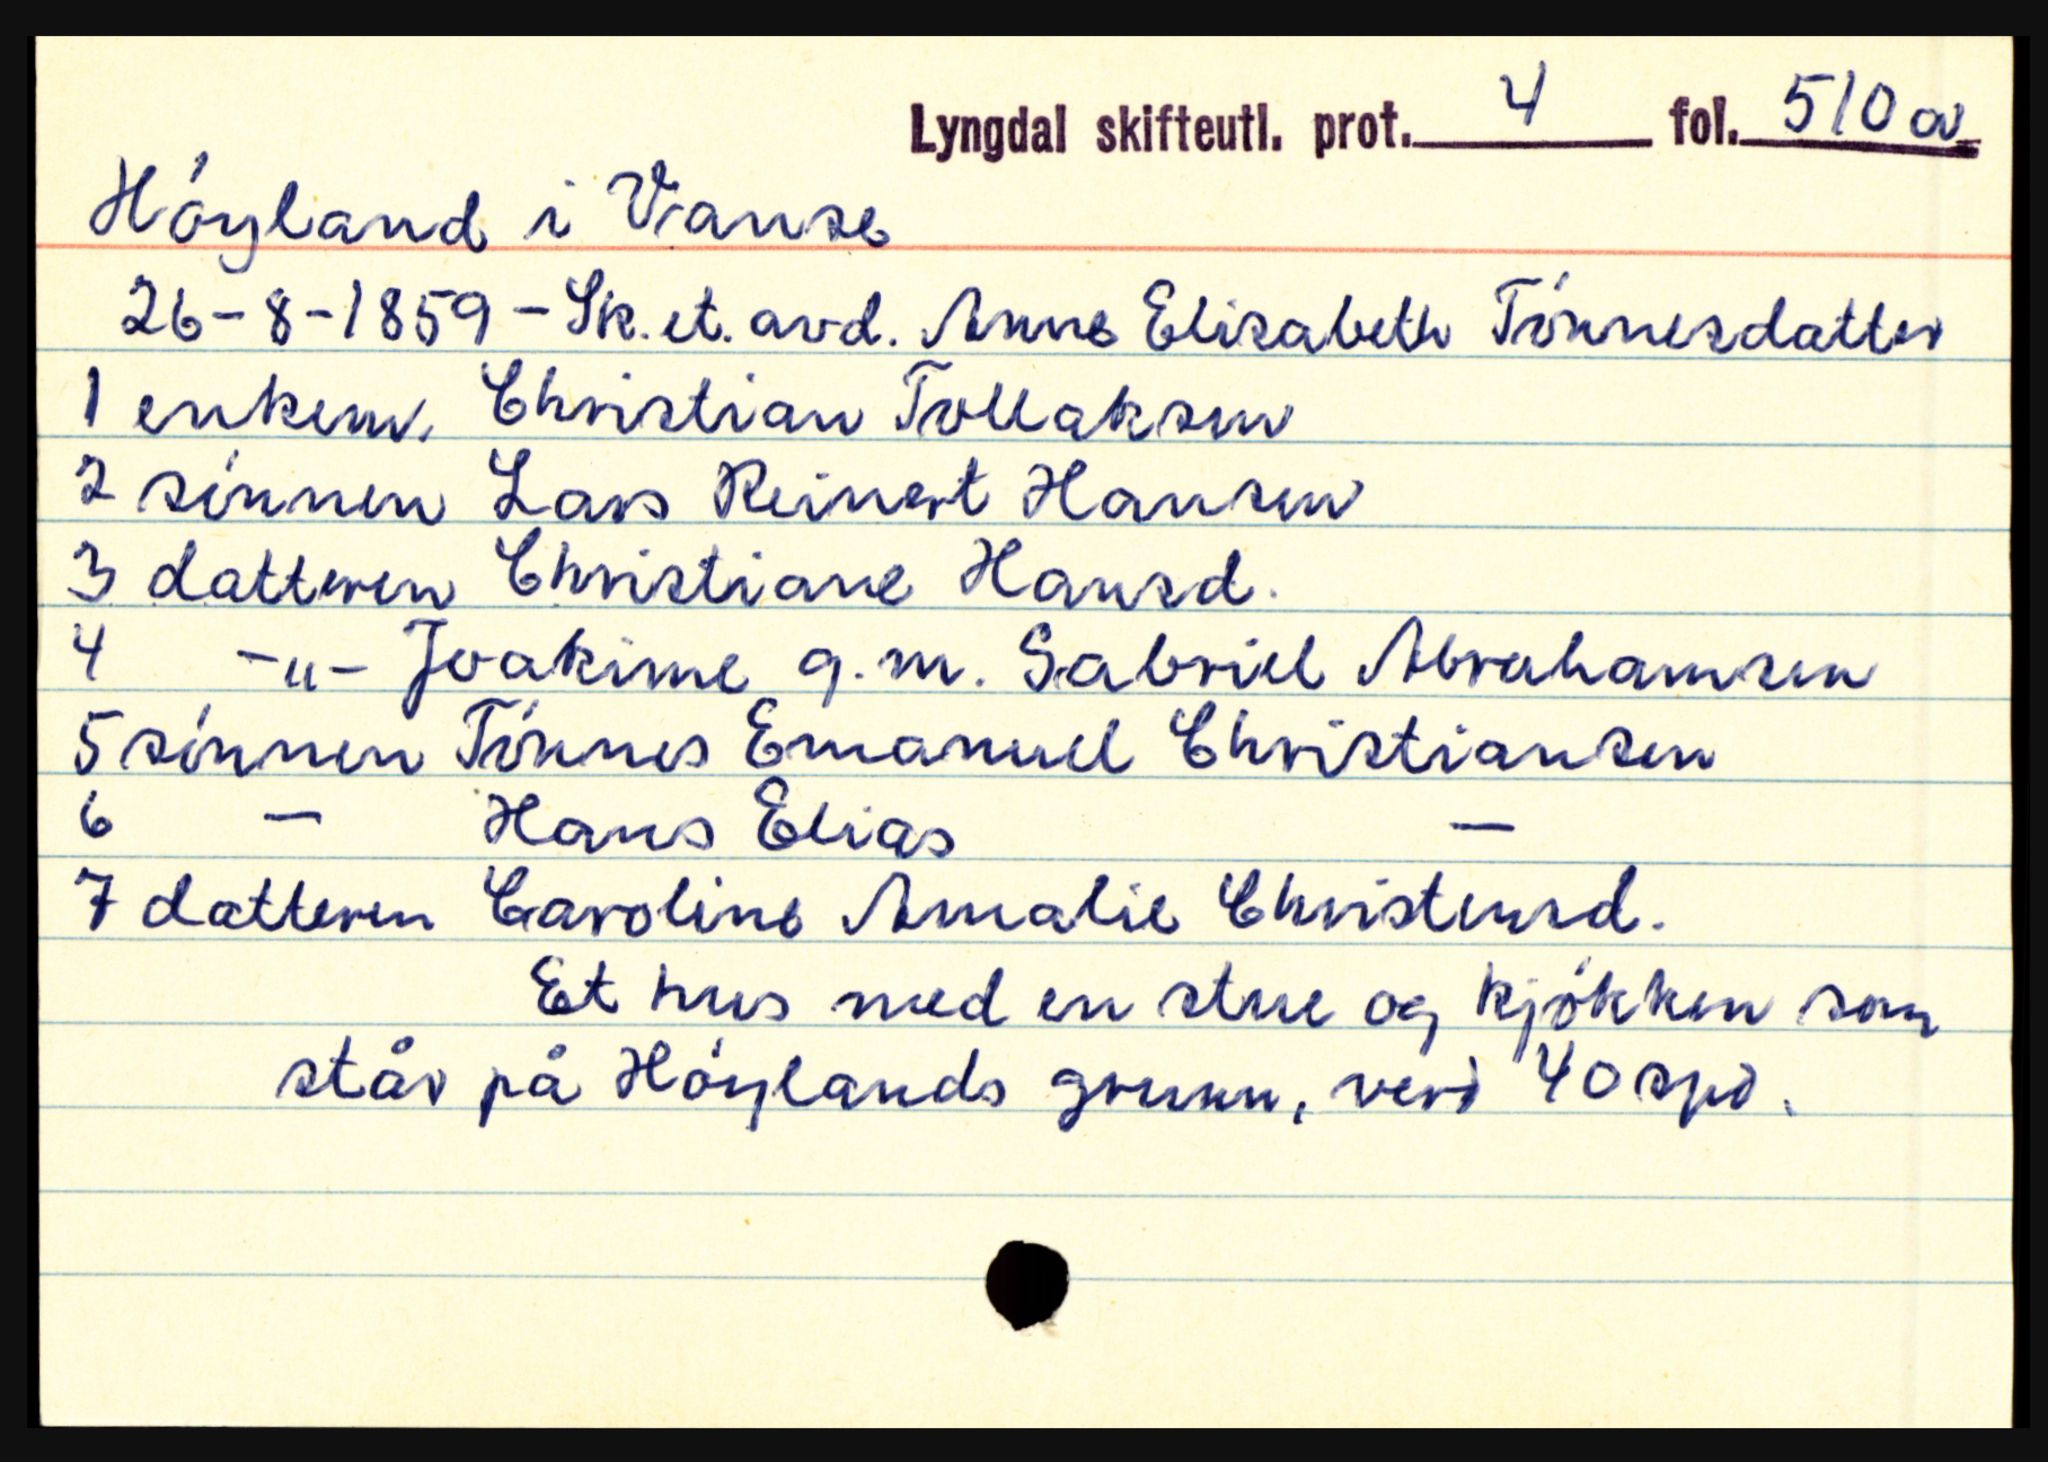 Lyngdal skifteutl. prot. 4 fol. 510a
Höyland i Vanse
26-8-1859 - Sk. et. avd. Anne Elisabeth Tönnesdatter
1 enkem. Christian Tollaksen
2 sönnen Lars Reinert Hansen
3 datteren Christiane Hansd.
4 -"- Joakime g.m. Gabriel Abrahamsen
5 sönnen Tönnes Emanuel Christiansen
6 - Hans Elias -
7 datteren Caroline Amalie Christensd.
Et hus med en stue og kjökken som
står på Höylands grunn, verd 40 spd.